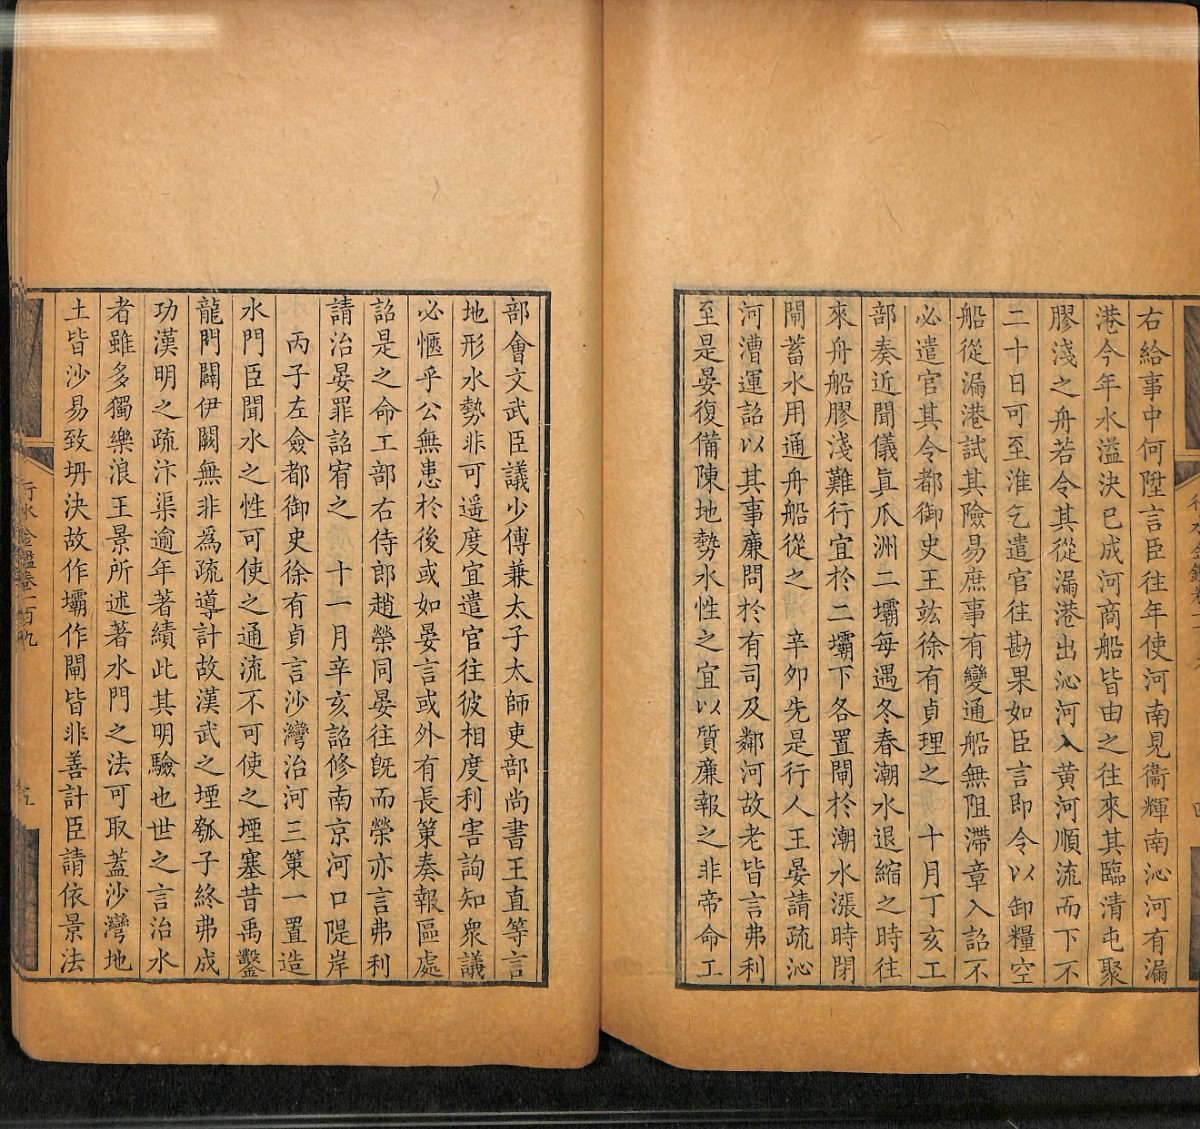 右給事中何陞言臣往年使河南見衞輝南沁河有漏
港今年水溢決已成河商船皆由之往來其臨清屯聚
膠淺之舟若令其從漏港出沁河入黄河順流而下不
二十日可至淮乞遣官往勘果如臣言即令以卸糧空
船從漏港試其險易庶事有變通船無阻滯章入詔不
必遣官其令都御史王竑徐有貞理之　十月丁亥工
部奏近聞儀真瓜洲二壩每遇冬春潮水退縮之時往
來舟船膠淺難行宜於二壩下各置閘於潮水漲時閉
閘蓄水用通舟船從之　辛夘先是行人王晏請疏沁
河漕運詔以其事廉問於有司及鄰河故老皆言弗利
至是晏復備陳地勢水性之宜以質廉報之非帝命工
部會文武臣議少傅兼太子太師吏部尚書王直等言
地形水勢非可遥度宜遣官往彼相度利害詢知衆議
必愜乎公無患於後或如晏言或外有長策奏報區處
詔是之命工部右侍郎趙榮同晏往旣而榮亦言弗利
請治晏罪詔宥之　十一月辛亥詔修南京河口隄岸
丙子左僉都御史徐有貞言沙灣治河三策一置造
水門臣聞水之性可使之通流不可使之堙塞昔禹鑿
龍門闢伊闕無非爲疏導計故漢武之堙瓠子終弗成
功漢明之疏汴渠逾年著績此其明驗也世之言治水
者雖多獨樂浪王景所述著水門之法可取蓋沙灣地
土皆沙易致坍決故作壩作閘皆非善計臣請依景法
行水金鑑卷一百九
五